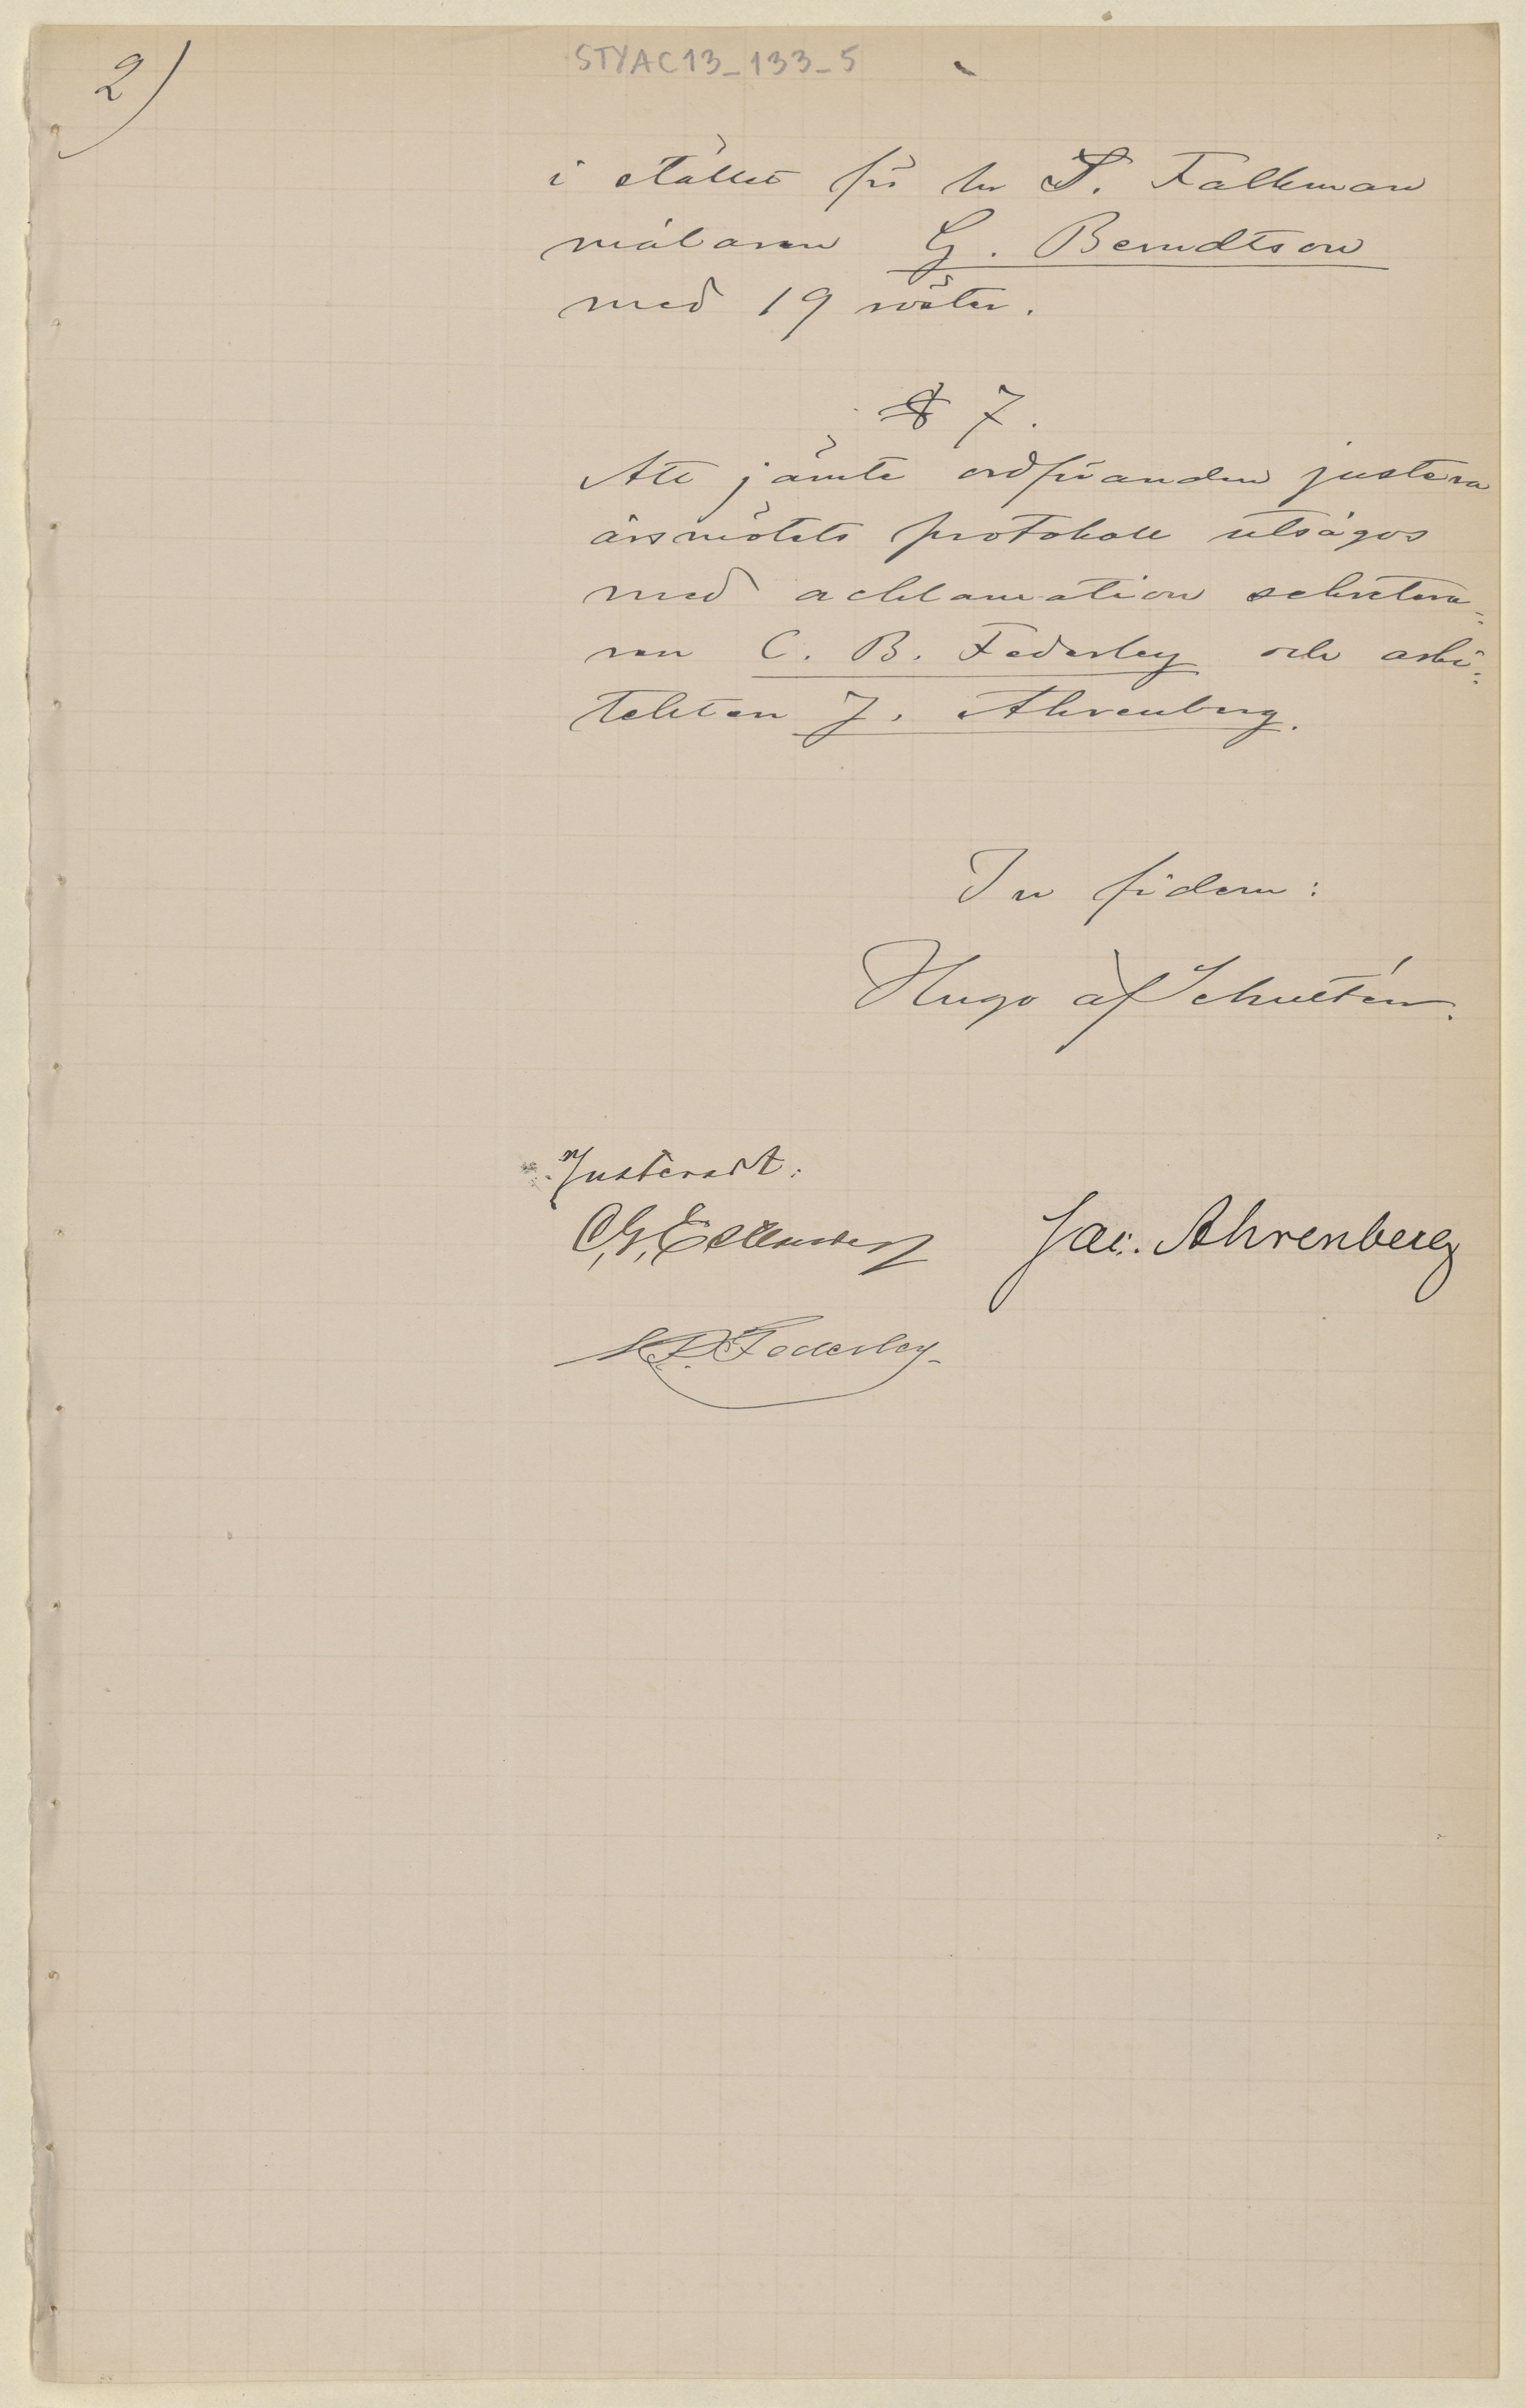 2)
STYAC13_133_5
i stället för hr S. Falkman
målaren G. Berndtson
med 19 röster.
§ 7.
Att jämte ordföranden justera
årsmötets protokoll utsågos
med acklamation sekretera-
ren C. B. Federley och arki-
tekten J. Ahrenberg.
In fidem:
Hugo af Schultén.
Justeradt:
C. G. Estlander Jac. Ahrenberg
C. B. Federley